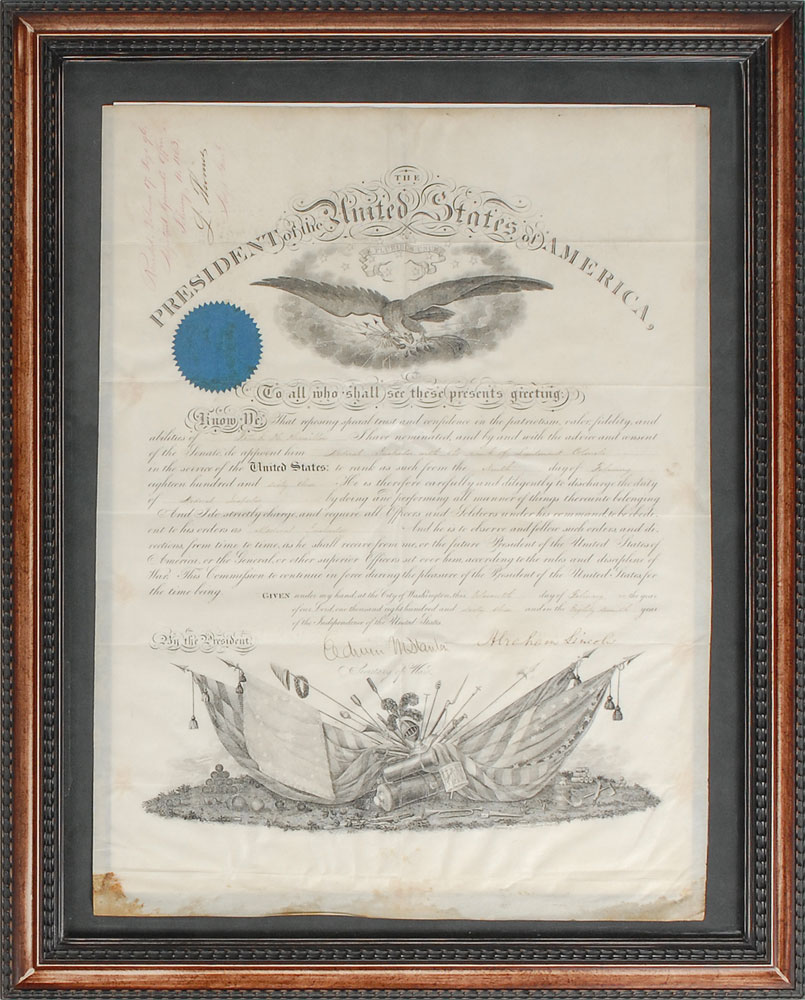 L. Thomas
THE
PRESIDENT of the United States of AMERICA,
E PLURIBUS UNUM
To all who shall see these presents greeting:
Know Ye, That reposing special trust and confidence in the patriotism, valor, fidelity, and
abilities of I have nominated, and by and with the advice and consent
of the Senate do appoint him Medical Inspector with the rank of Lieutenant Colonel
in the service of the United States: to rank as such from the day of February
eighteen hundred and sixty three He is therefore carefully and diligently to discharge the duty
of Medical Inspector by doing and performing all manner of things thereunto belonging
And I do strictly charge, and require all Officers and Soldiers under his command to be obedi-
ent to his orders as Medical Inspector And he is to observe and follow such orders and di-
rections from time to time, as he shall receive from me, or the future President of the United States of
America, or the General, or other superior Officers set over him, according to the rules and discipline of
War. This Commission to continue in force during the pleasure of the President of the United States, for
the time being.
GIVEN under my hand, at the City of Washington, this day of February in the year
of our Lord, one thousand eight hundred and sixty three and in the Eighty Seventh year
of the Independence of the United States.
By the President,
Abraham Lincoln
Edwin M Stanton
Secretary of War.